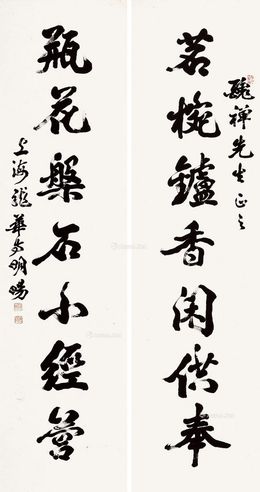 醜禅先生正之
茗椀鑪香閑供奉
瓶花槃石小經營
上海龍華

明暘